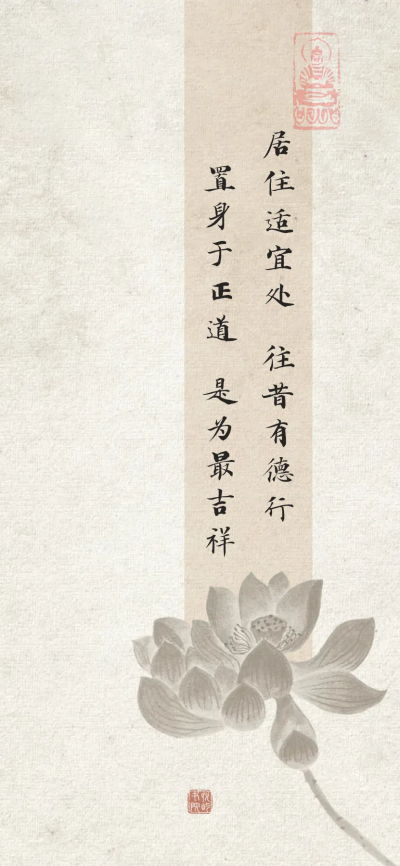 居住适宜处 往昔有德行
置身于正道 是为最吉祥